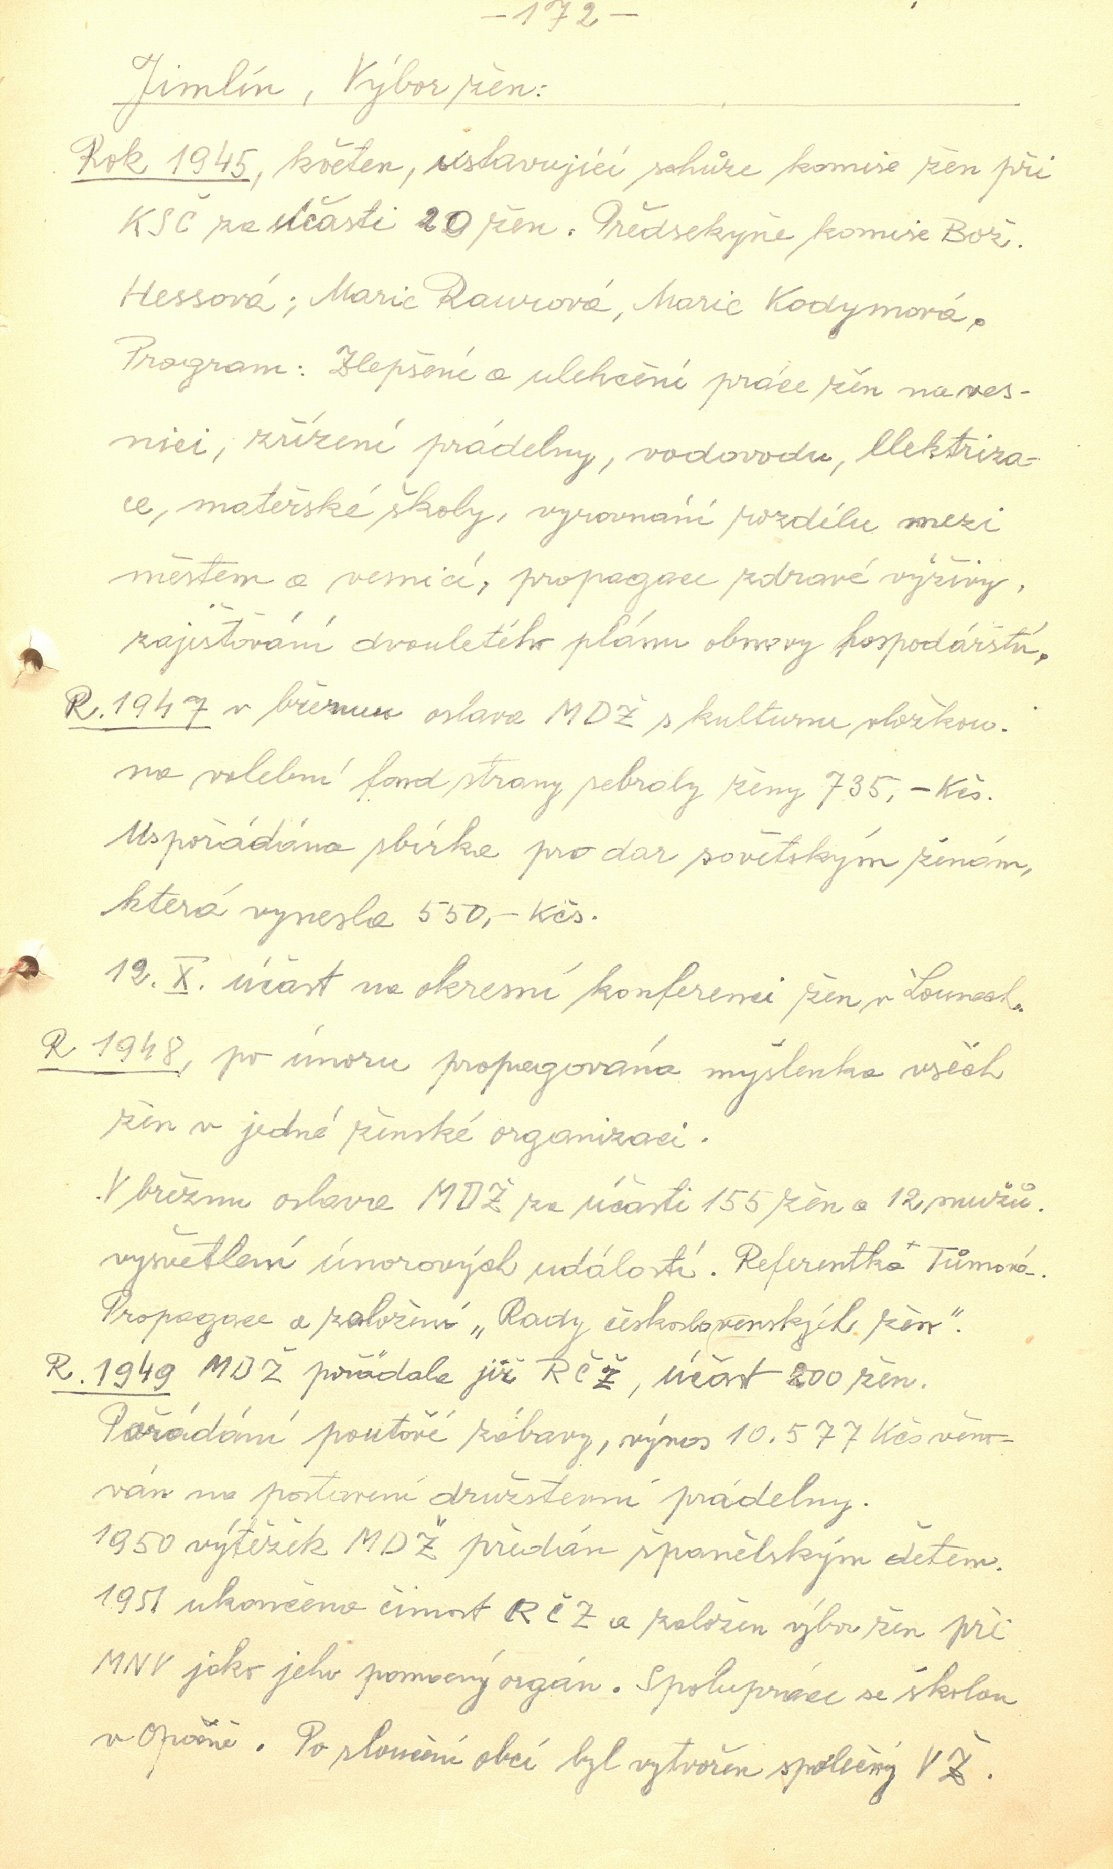 – 172 –
Jimlín, Výbor žen:
Rok 1945, květen, ustavující schůze komise žen při
KSČ za účasti 20 žen. Předsekyně komise Bož.
Hessová; Marie Raurová, Marie Kodymová.
Program: Zlepšení a ulehčení práce žen na ves-
nici, zřízení prádelny, vodovodu, elektriza-
ce, mateřské školy, vyrovnání rozdílu mezi
městem a vesnicí, propagace zdravé výživy,
zajišťování dvouletého plánu obnovy hospodářství.
R. 1947 v březnu oslava MDŽ s kulturnu vložkou.
na volební fond strany sebraly ženy 735,– Kčs.
Uspořádána sbírka pro dar sovětským ženám,
která vynesla 550,– Kčs.
12. X. účast na okresní konferenci žen v Lounech.
R 1948, po únoru propagována myšlenka všech
žen v jedné ženské organizaci.
V březnu oslava MDŽ za účasti 155 žen a 12 mužů.
vysvětlení únorových událostí. Referentka Tůmová.
Propagace a založení „Rady československých žen".
R. 1949 MDŽ pořádala již RČŽ, účast 200 žen.
Pořádání pouťové zábavy, výnos 10.577 Kčs věno-
ván na postavení družstevní prádelny.
1950 výtěžek MDŽ předán španělským dětem.
1951 ukončena činnost RČZ a založen výbor žen při
MNV jako jeho pomocný orgán. Spolupráce se školou
v Opočně. Po sloučení obcí byl vytvořen společný VŽ.